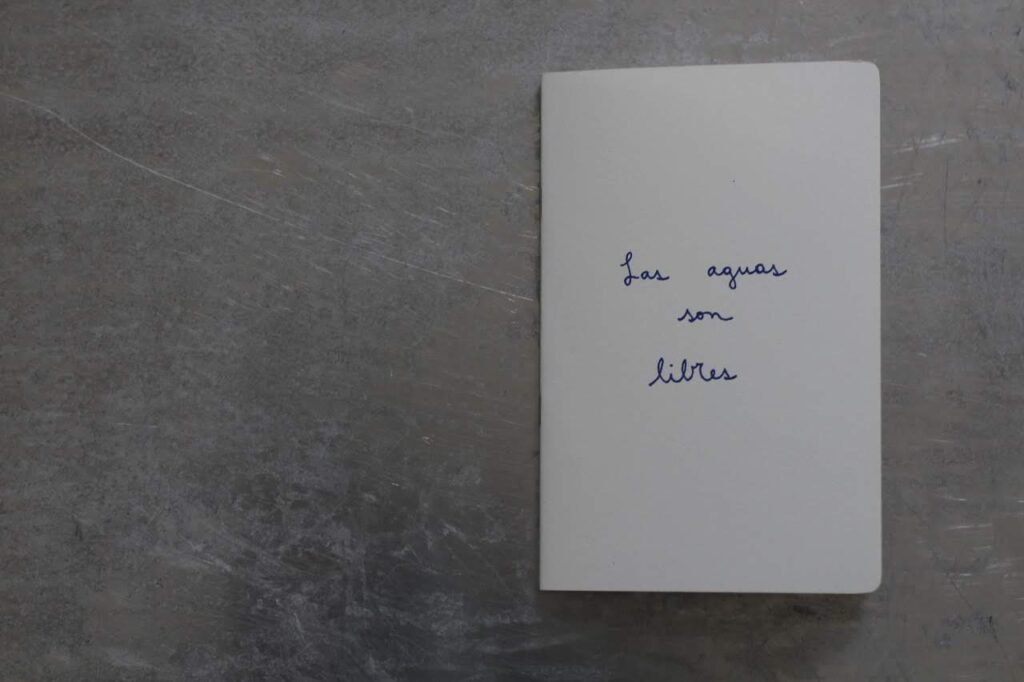 Las aguas
son
libres